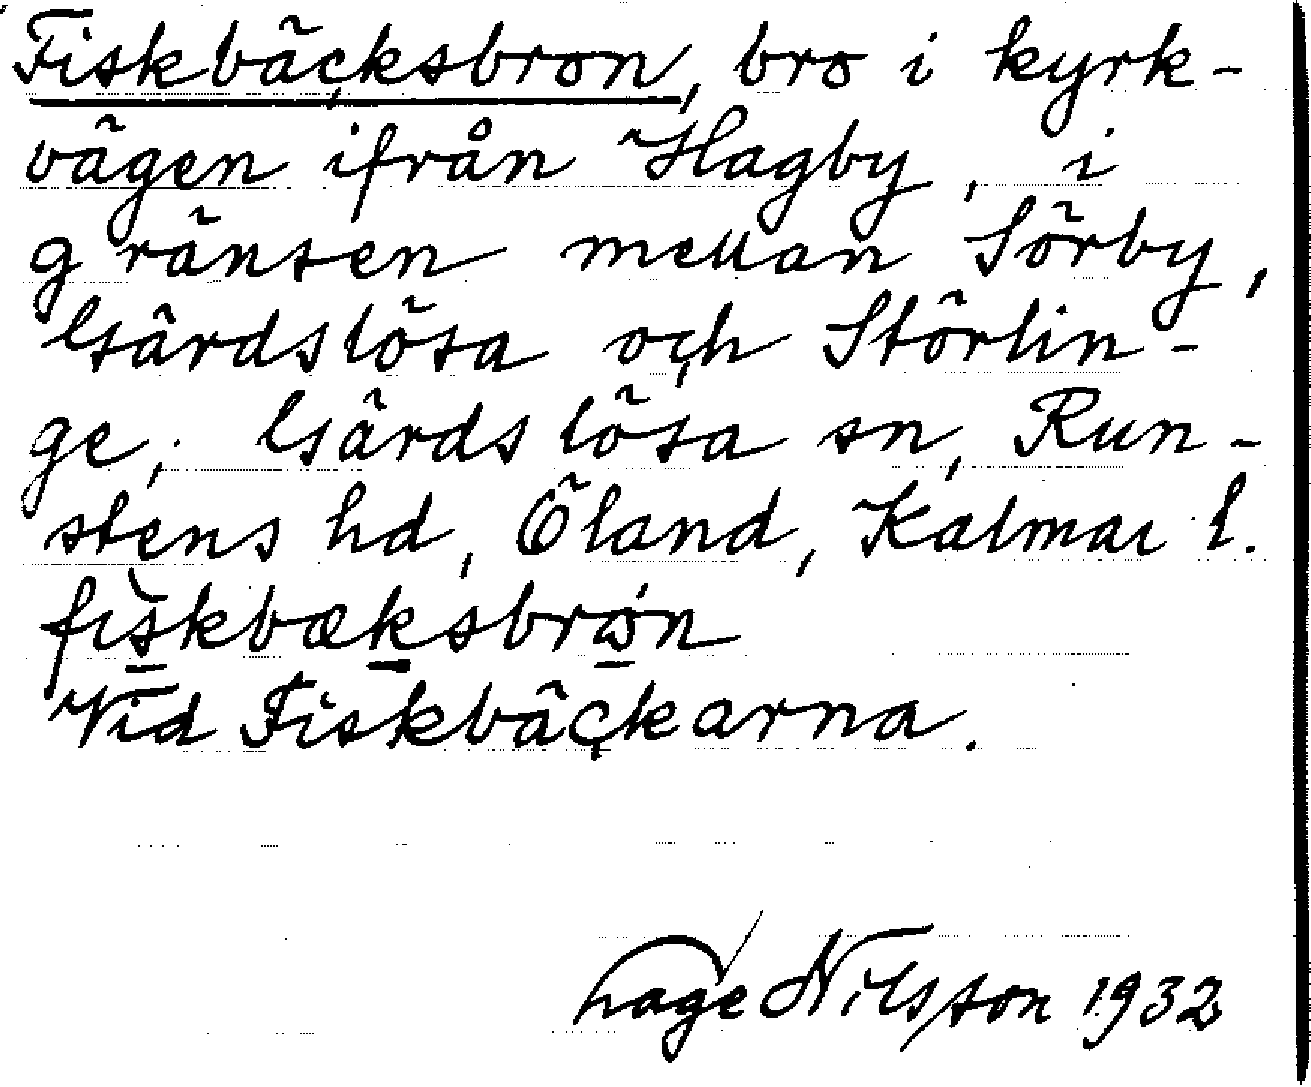 Fiskbäcksbron, bro i kyrk-
vägen ifrån Hagby, i
gränsen mellan Sörby,
Gärdslösa och Störlin-
ge, Gärdslösa sn, Run-
stens hd, Öland, Kalmar l.
fiskbæksbrón
Vid Fiskbäckarna.
Nilsson 1932